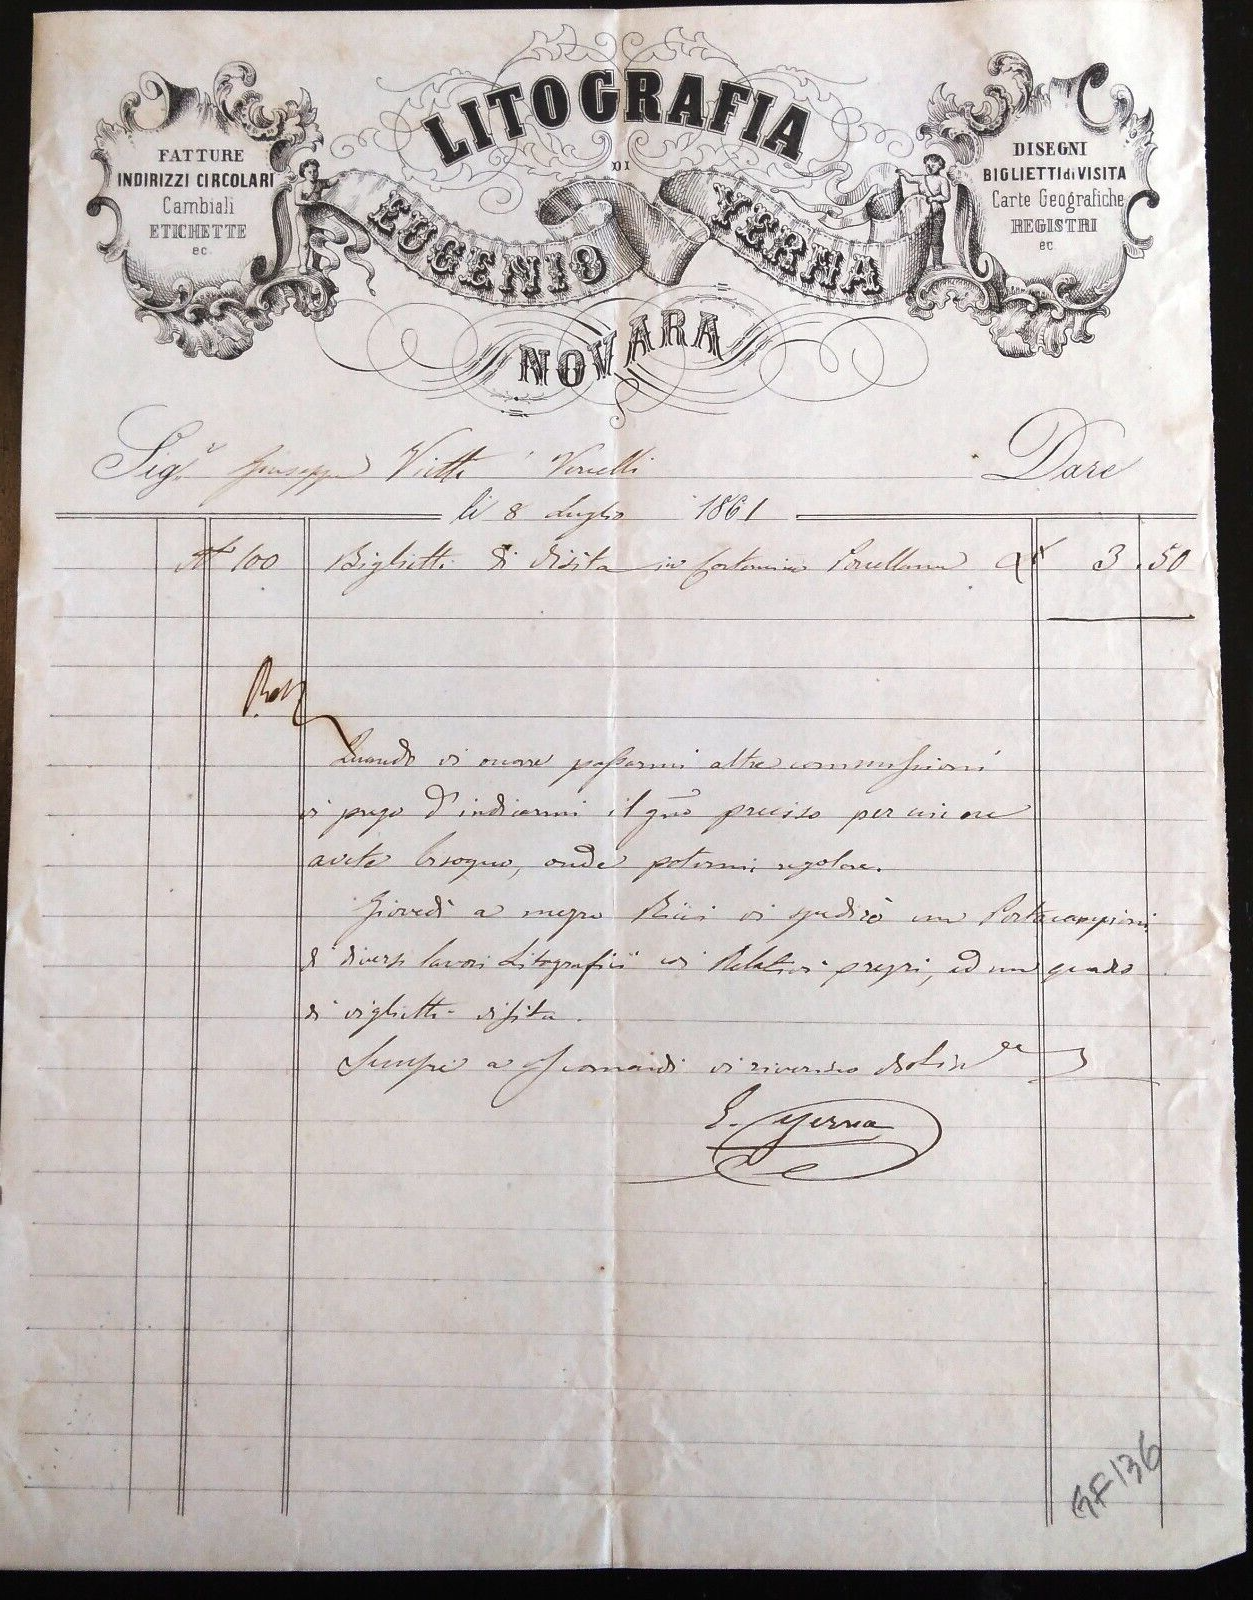 LITOGRAFIA
DI
EUGENIO YERNA
NOVARA
FATTURE
INDIRIZZI CIRCOLARI
Cambiali
ETICHETTE
ec.
DISEGNI
BIGLIETTI di VISITA
Carte Geografiche
REGISTRI
ec
Sig.r Giuseppe Vercelli Dare
li 8 Luglio 1861
N° 100 Biglietti di visita in Cartoncino Porcellana 3.50
Quando vi occorre passarmi altre commissioni
vi prego d'indicarmi il preciso per cui ne
avete bisogno, onde potermi regolare.
Giovedì a mezzo vi spedirò un Portacampioni
di diversi lavori Litografici coi Relativi prezzi, ed un quadro
di viglietti visita.
Sempre a vi riverisco
E. Yerna
GF136